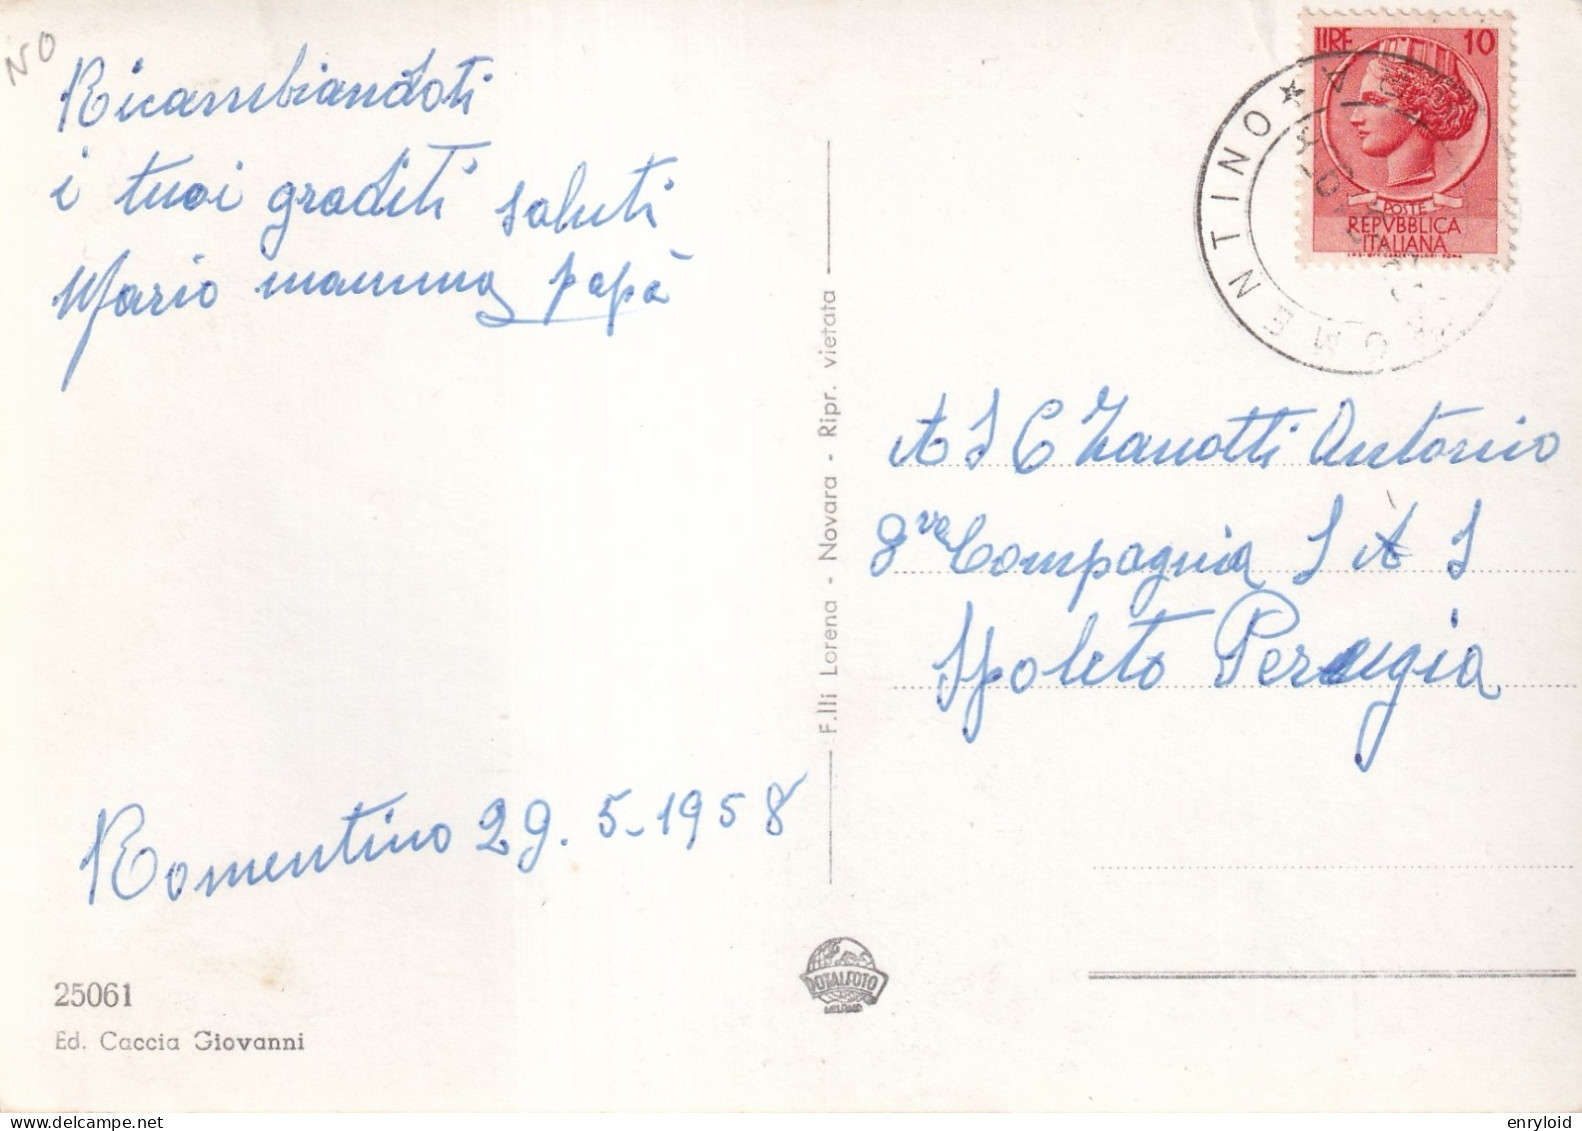 NO
Ricambiandoti
i tuoi graditi saluti
Mario mamma papà
Romentino 29.5-1958
25061
Ed. Caccia Giovanni
F.lli Lorena - Novara - Ripr. vietata
DOTALFOTO
MILANO
LIRE 10
POSTE
REPVBBLICA
ITALIANA
OMENTINO
A S C Zanotti Antonio
8va Compagnia S A S
Spoleto Perugia
enryloid